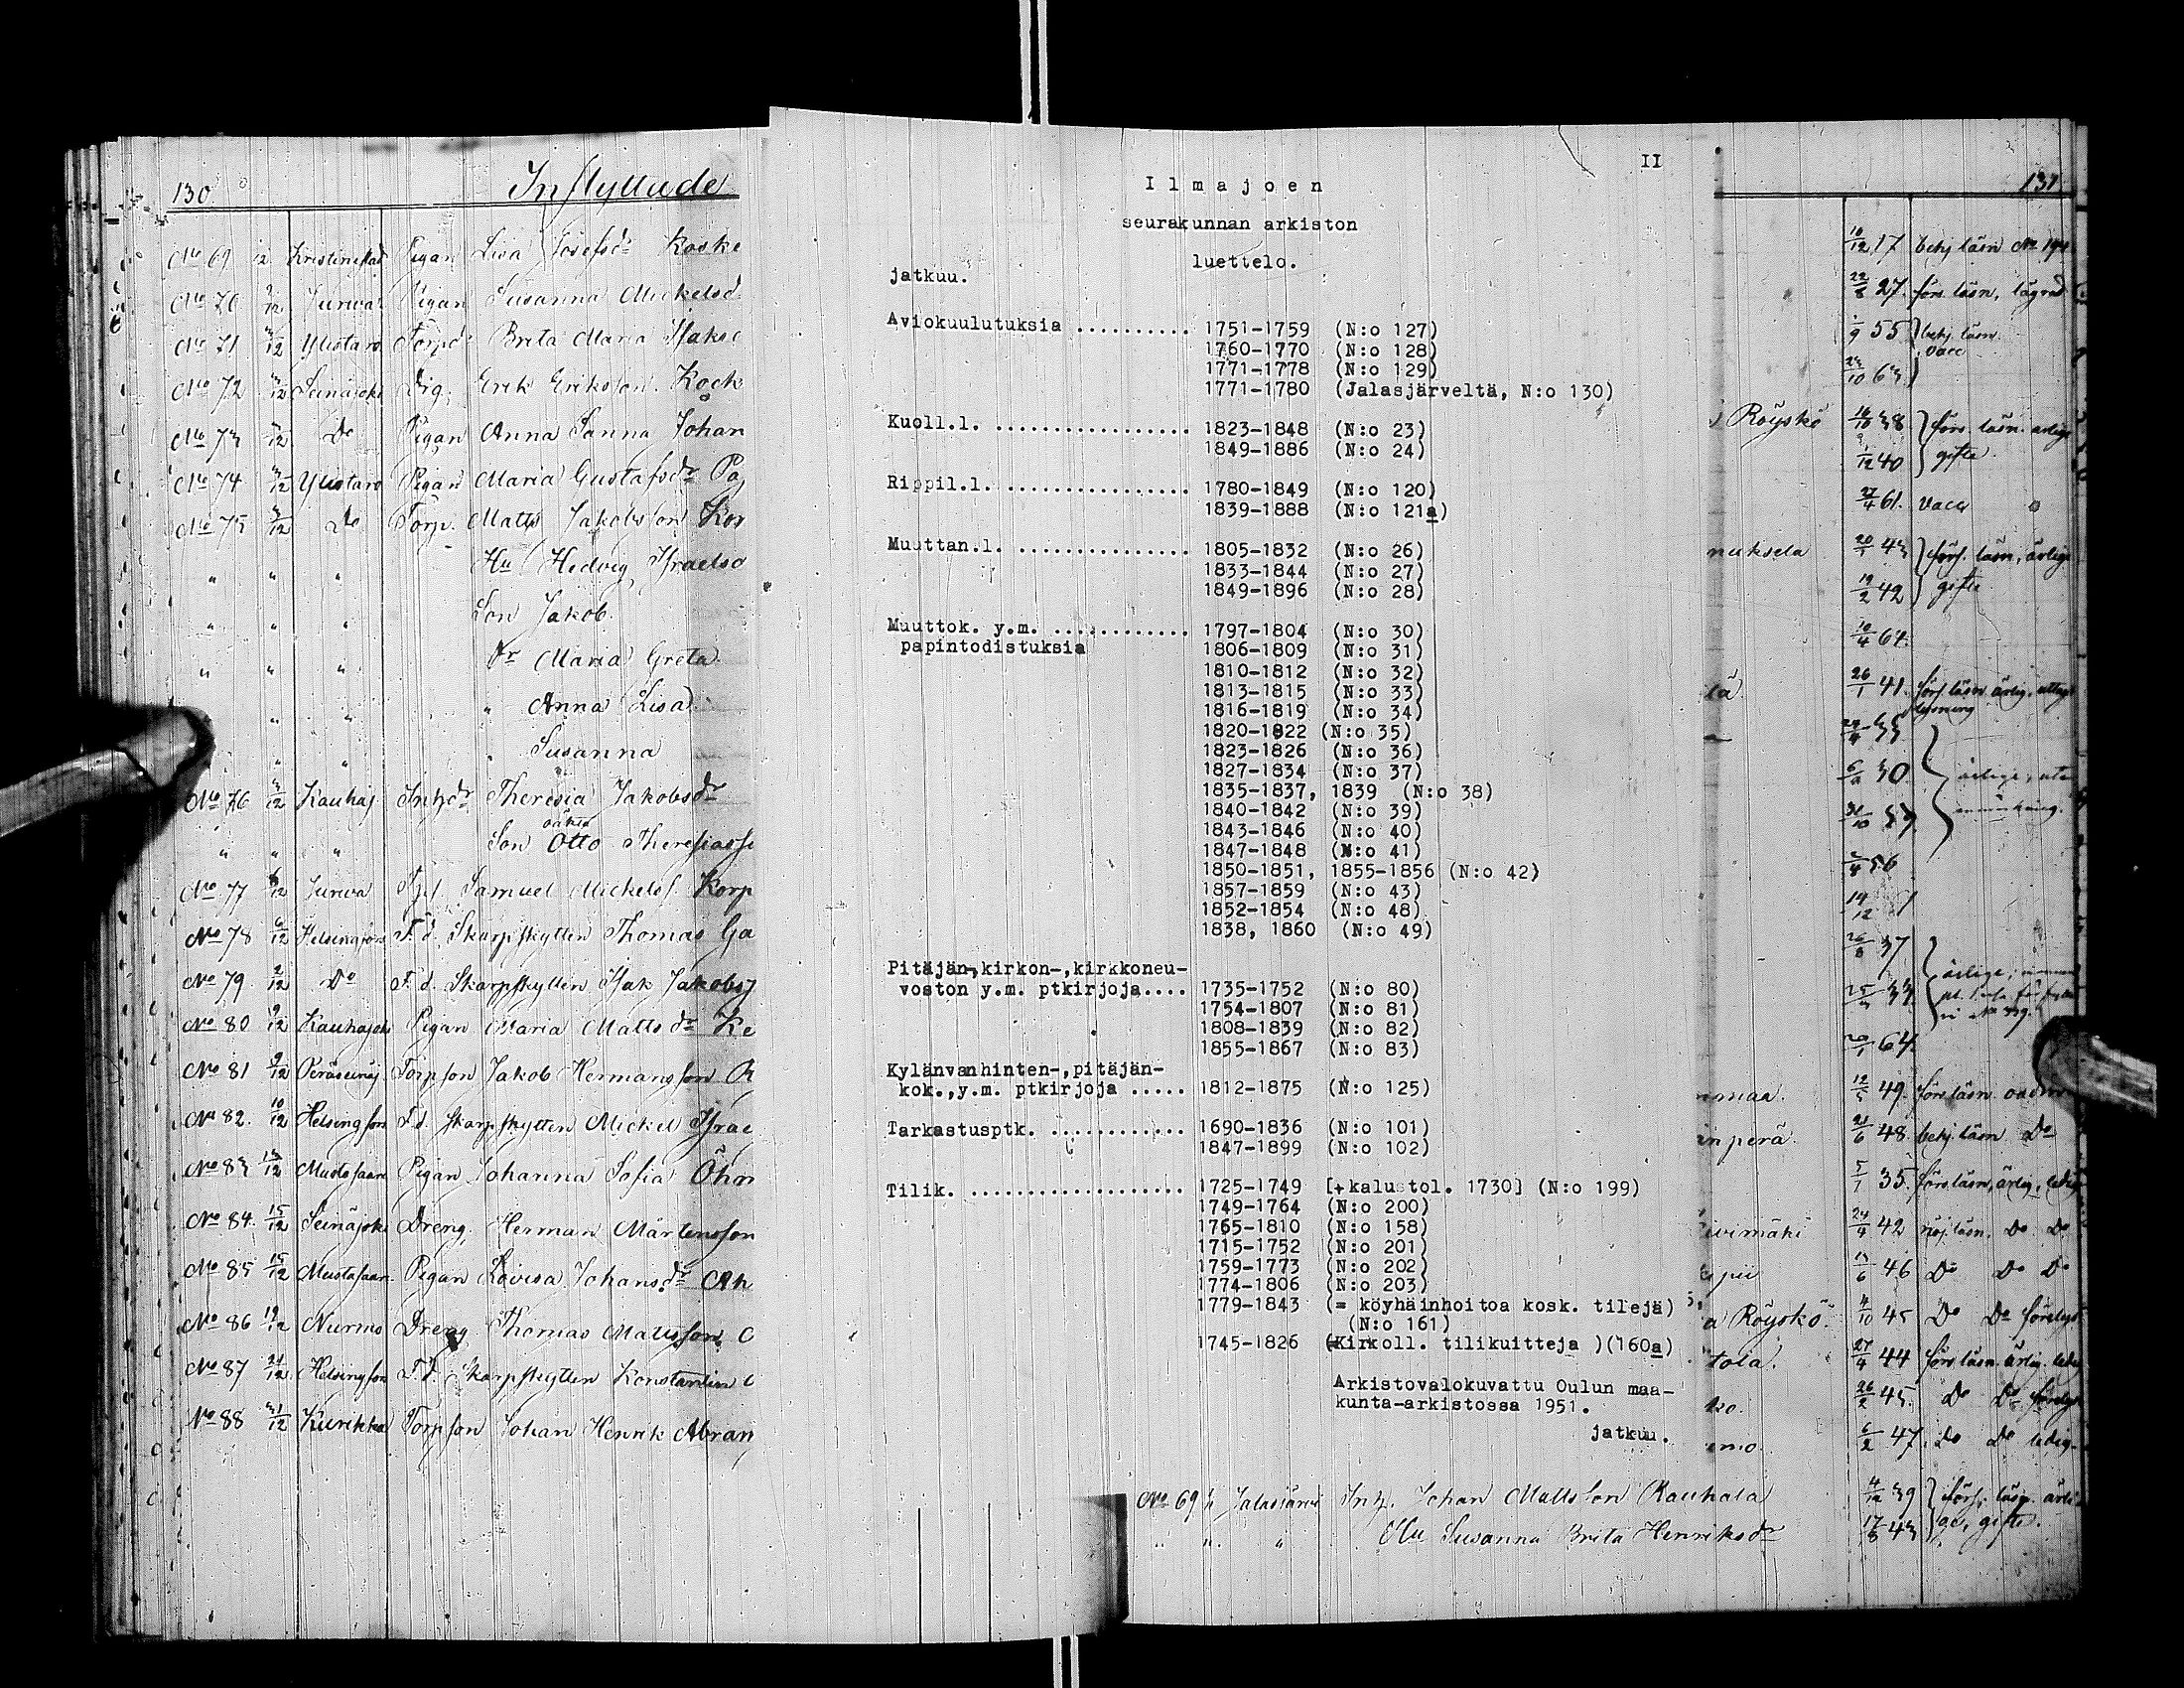 130.
Inflyttade
No 69 12 Kristinestad Pigan Lisa Josefsdr Koske
No 70 9/12 Jurva Pigan Susanna Mickelsd
No 71 3/12 Ylistaro Torpd Brita Maria Isaksd
No 72 3/12 Seinäjoki Drg. Erik Eriksson Kock
No 73 3/12 Do Pigan Anna Sanna Johan
No 74 3/12 Ylistaro Pigan Maria Gustafsdr Pa
No 75 3/12 Do Torp. Matts Jakobsson Kor
" " " Hu Hedvig Israelsd
" " " Son Jakob
" " " Dr Maria Greta
" " " Anna Lisa
" " " Susanna
No 76 3/12 Kauhaj Inhdr Theresia Jakobsdr
" " " Son oäkta Otto Theresiasso
No 77 6/12 Jurva Samuel Mickelss. Korp
No 78 6/12 Helsingfors F.d. Skarpskytten Thomas Ga
No 79 9/12 Do F.d. Skarpskytten Isak Jakobs
No 80 9/12 Kauhajoki Pigan Maria Mattsdr Ke
No 81 9/12 Peräseinäj Torpson Jakob Hermansson R
No 82. 10/12 Helsingfors F.d. skarpskytten Mickel Israe
No 83 13/12 Mustasaari Pigan Johanna Sofia Öhm
No 84. 15/12 Seinäjoki Dreng. Herman Mårtensson
No 85 15/12 Mustasaari Pigan Lovisa Johansdr Ah
No 86 19/12 Nurmo Dreng Thomas Mattsson
No 87 21/12 Helsingfors F.d. Skarpskytten Konstantin
No 88 31/12 Kurikka Torpson Johan Henrik Abram
II
Ilmajoen
seurakunnan arkiston
luettelo.
jatkuu.
Aviokuulutuksia .......... 1751-1759 (N:o 127)
1760-1770 (N:o 128)
1771-1778 (N:o 129)
1771-1780 (Jalasjärveltä, N:o 130)
Kuoll.l. ................. 1823-1848 (N:o 23)
1849-1886 (N:o 24)
Rippil.l. ................ 1780-1849 (N:o 120)
1839-1888 (N:o 121a)
Muuttan.l. ............... 1805-1832 (N:o 26)
1833-1844 (N:o 27)
1849-1896 (N:o 28)
Muuttok. y.m. ............ 1797-1804 (N:o 30)
papintodistuksia 1806-1809 (N:o 31)
1810-1812 (N:o 32)
1813-1815 (N:o 33)
1816-1819 (N:o 34)
1820-1822 (N:o 35)
1823-1826 (N:o 36)
1827-1834 (N:o 37)
1835-1837, 1839 (N:o 38)
1840-1842 (N:o 39)
1843-1846 (N:o 40)
1847-1848 (N:o 41)
1850-1851, 1855-1856 (N:o 42)
1857-1859 (N:o 43)
1852-1854 (N:o 48)
1838, 1860 (N:o 49)
Pitäjän-,kirkon-,kirkkoneu-
voston y.m. ptkirjoja.... 1735-1752 (N:o 80)
1754-1807 (N:o 81)
1808-1839 (N:o 82)
1855-1867 (N:o 83)
Kylänvanhinten-,pitäjän-
kok.,y.m. ptkirjoja ..... 1812-1875 (N:o 125)
Tarkastusptk. ............ 1690-1836 (N:o 101)
1847-1899 (N:o 102)
Tilik. ................... 1725-1749 [+kalustol. 1730] (N:o 199)
1749-1764 (N:o 200)
1765-1810 (N:o 158)
1715-1752 (N:o 201)
1759-1773 (N:o 202)
1774-1806 (N:o 203)
1779-1843 (= köyhäinhoitoa kosk. tilejä)
(N:o 161)
1745-1826 (Kirkoll. tilikuitteja )(160a)
Arkistovalokuvattu Oulun maa-
kunta-arkistossa 1951.
jatkuu.
No 69 Jalasjärvi Inh. Johan Mattsson Rauhala
" " " Hu Susanna Brita Henriksdr
131
10/12 17 behj. läsn No
22/8 27. förs. läsn, lägrad
1/9 55 behj. läsn.
vacc
23/10 63
Röyskö 16/10 38 förs. läsn. ärlige
1/12 40 gifte
27/4 61. vacc
nuksela 20/1 43 förs. läsn, ärlige
19/2 42 gifte
10/4 64.
lä 26/1 41. förs. läsn ärlig.
lysning
6/9 30 ärlige, utan
31/10 33 anmärkning.
2/4 56
14/12
26/8 37 ärlige,
25/3 33
20/1 64.
maa. 12/5 49. förs. läsn.
inperä. 21/6 48. behj. läsn Do
5/1 35. förs. läsn, ärlig, ledig
ivimäki 24/4 42 nöj. läsn, Do Do
pii 13/6 46 Do Do Do
a Röyskö. 4/10 45 Do Do förelyst
tola. 27/4 44 förs. läsn. ärlig. ledig
ko. 26/2 45. Do Do förelyst
mo. 6/2 47. Do Do ledig.
4/12 39 förs. läsn. ärli-
17/8 43 ge, gifte.